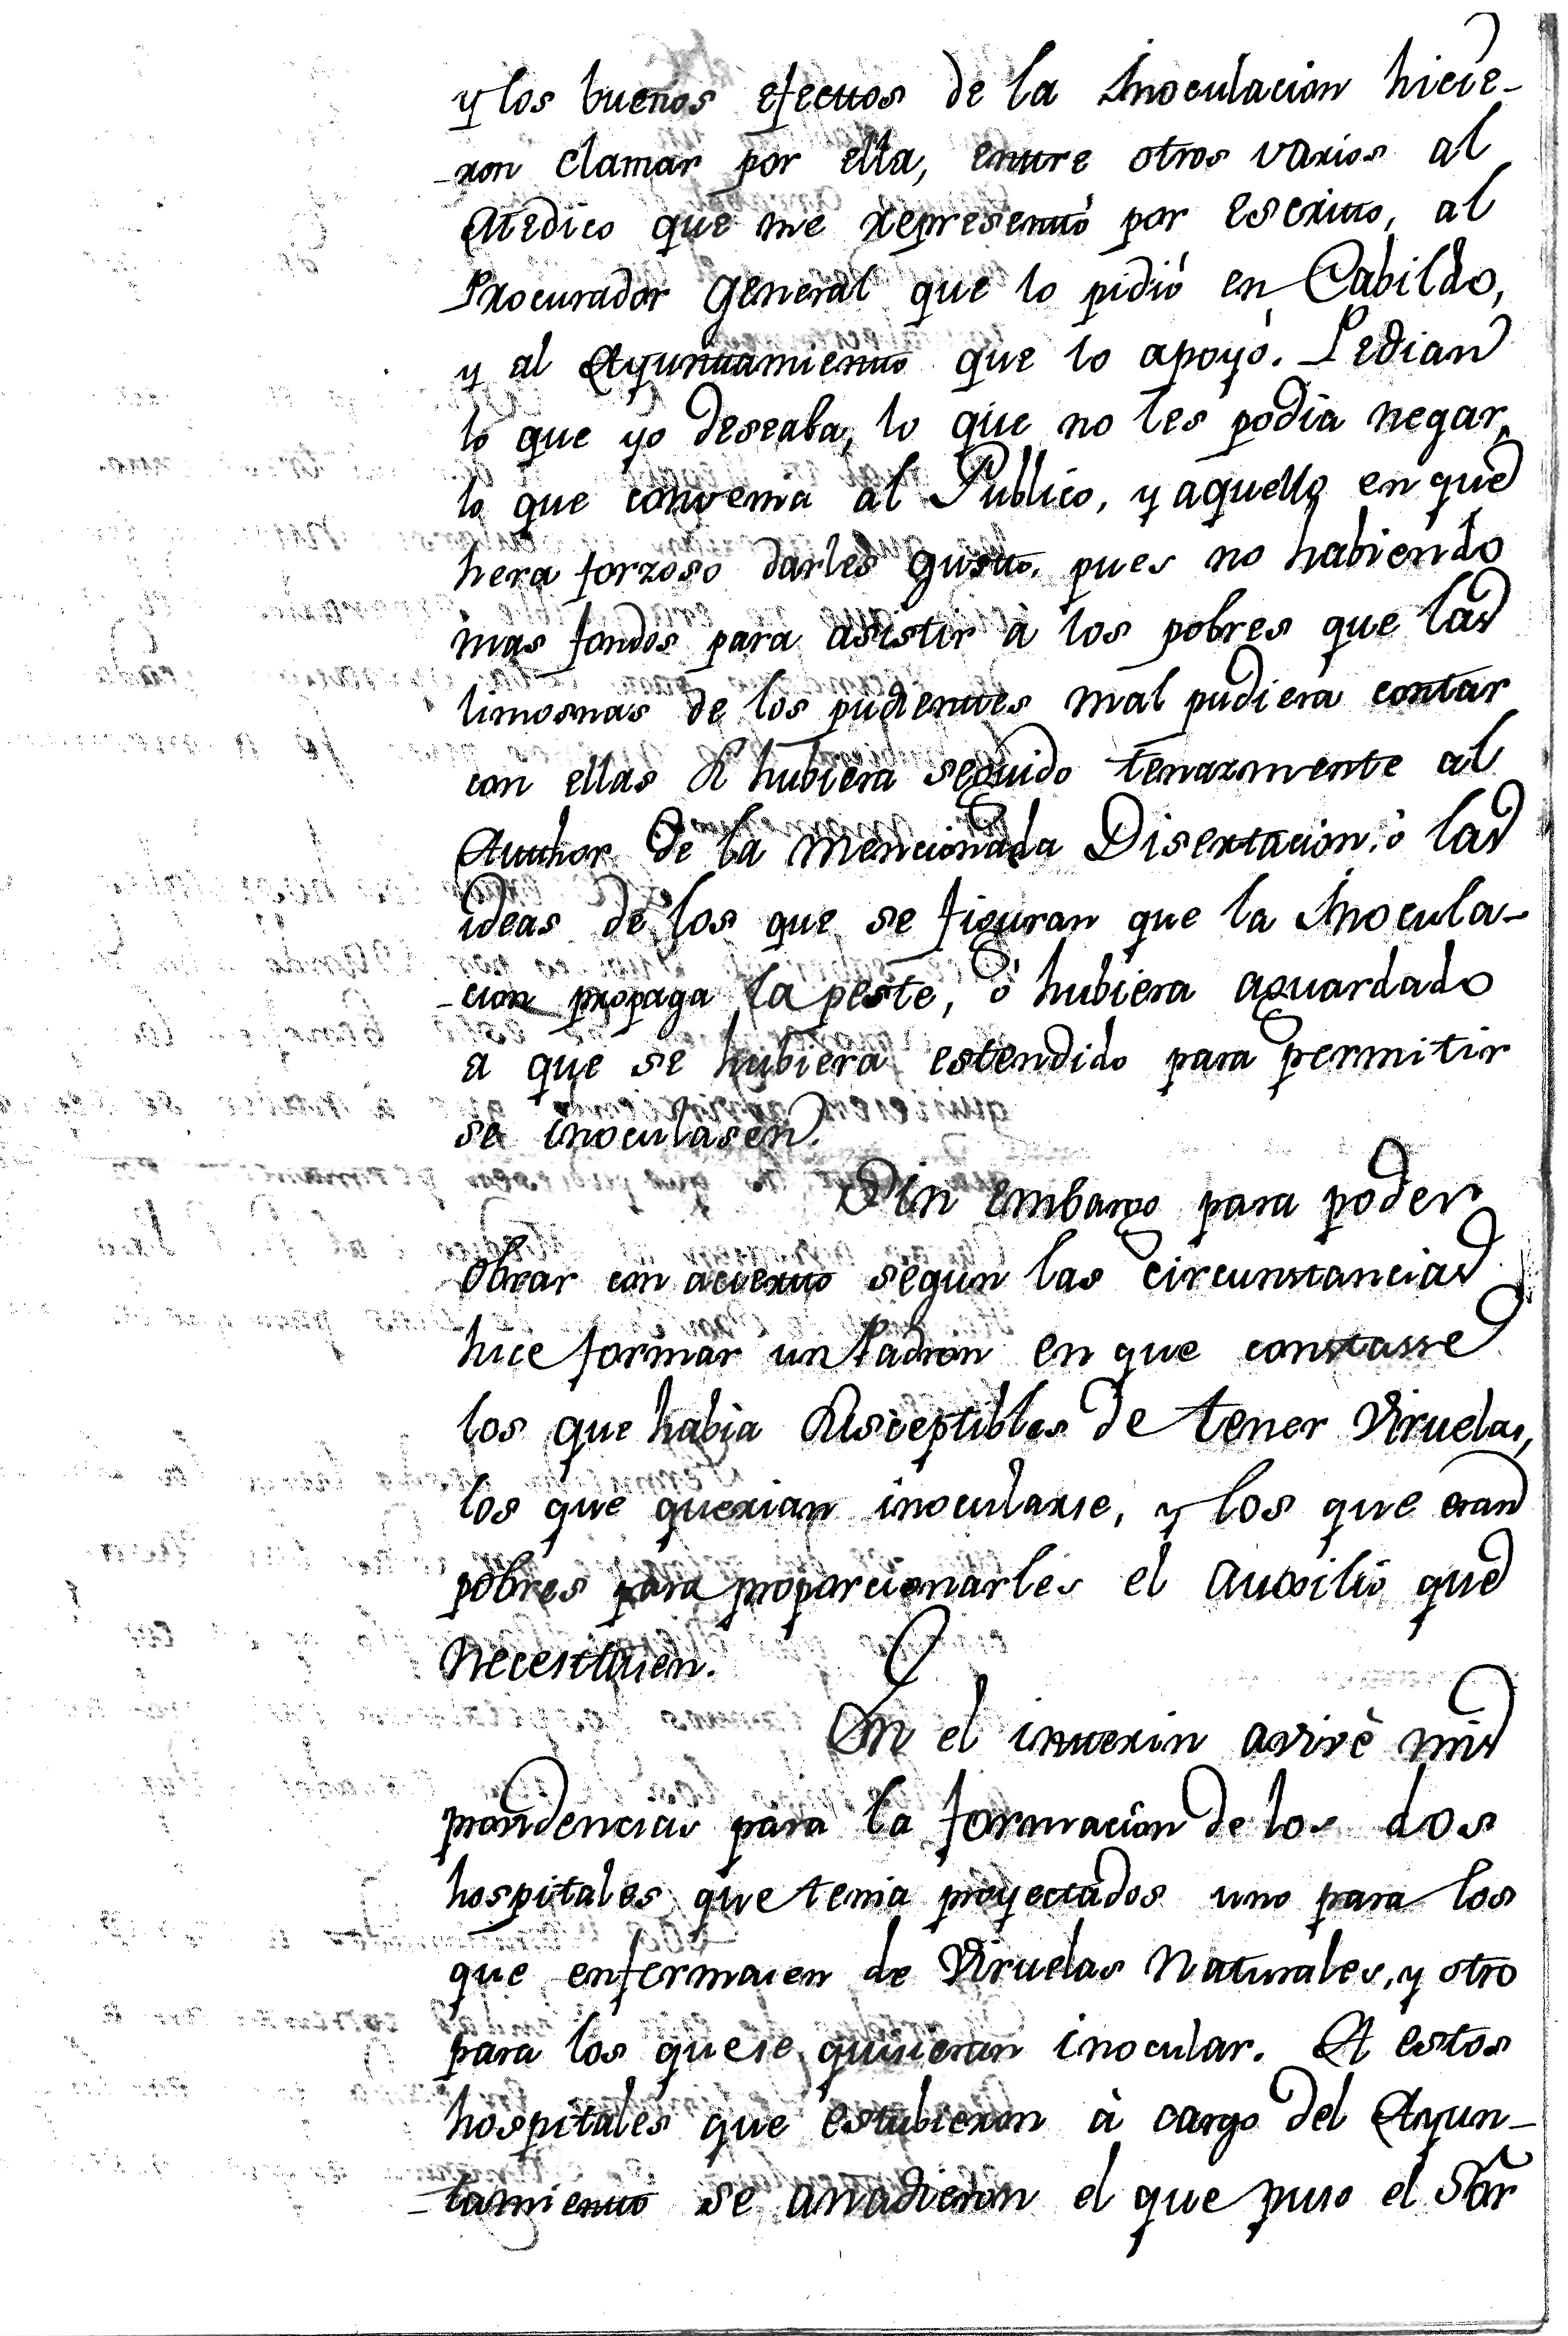 y los buenos efectos de la Inoculacion hicie-
-ron clamar por ella, entre otros varios al
Medico que me representó por escrito, al
Procurador General que lo pidió en Cabildo,
y al Ayuntamiento que lo apoyó. Pedian
lo que yo deseaba, lo que no les podia negar,
lo que convenia al Publico, y aquello en que
hera forzoso darles gusto, pues no habiendo
mas fondos para asistir a los pobres que las
limosnas de los pudientes mal pudiera contar
con ellas si hubiera seguido tenazmente al
Author de la mencionada Disertacion, ò las
ideas de los que se figuran que la Inocula-
-cion propaga la peste, ò hubiera aguardado
a que se hubiera estendido para permitir
se inoculasen.
Sin embargo para poder
obrar con acierto segun las circunstancias
hice formar un Padron en que constasse
los que habia susceptibles de tener Viruelas,
los que querian inocularse, y los que eran
pobres para proporcionarles el auxilio que
necesitasen.
En el interin avivè mis
providencias para la formacion de los dos
hospitales que tenia proyectados uno para los
que enfermasen de Viruelas Naturales, y otro
para los que se quisieran inocular. A estos
hospitales que estubieron à cargo del Ayun-
-tamiento se anadieron el que puso el Sõr